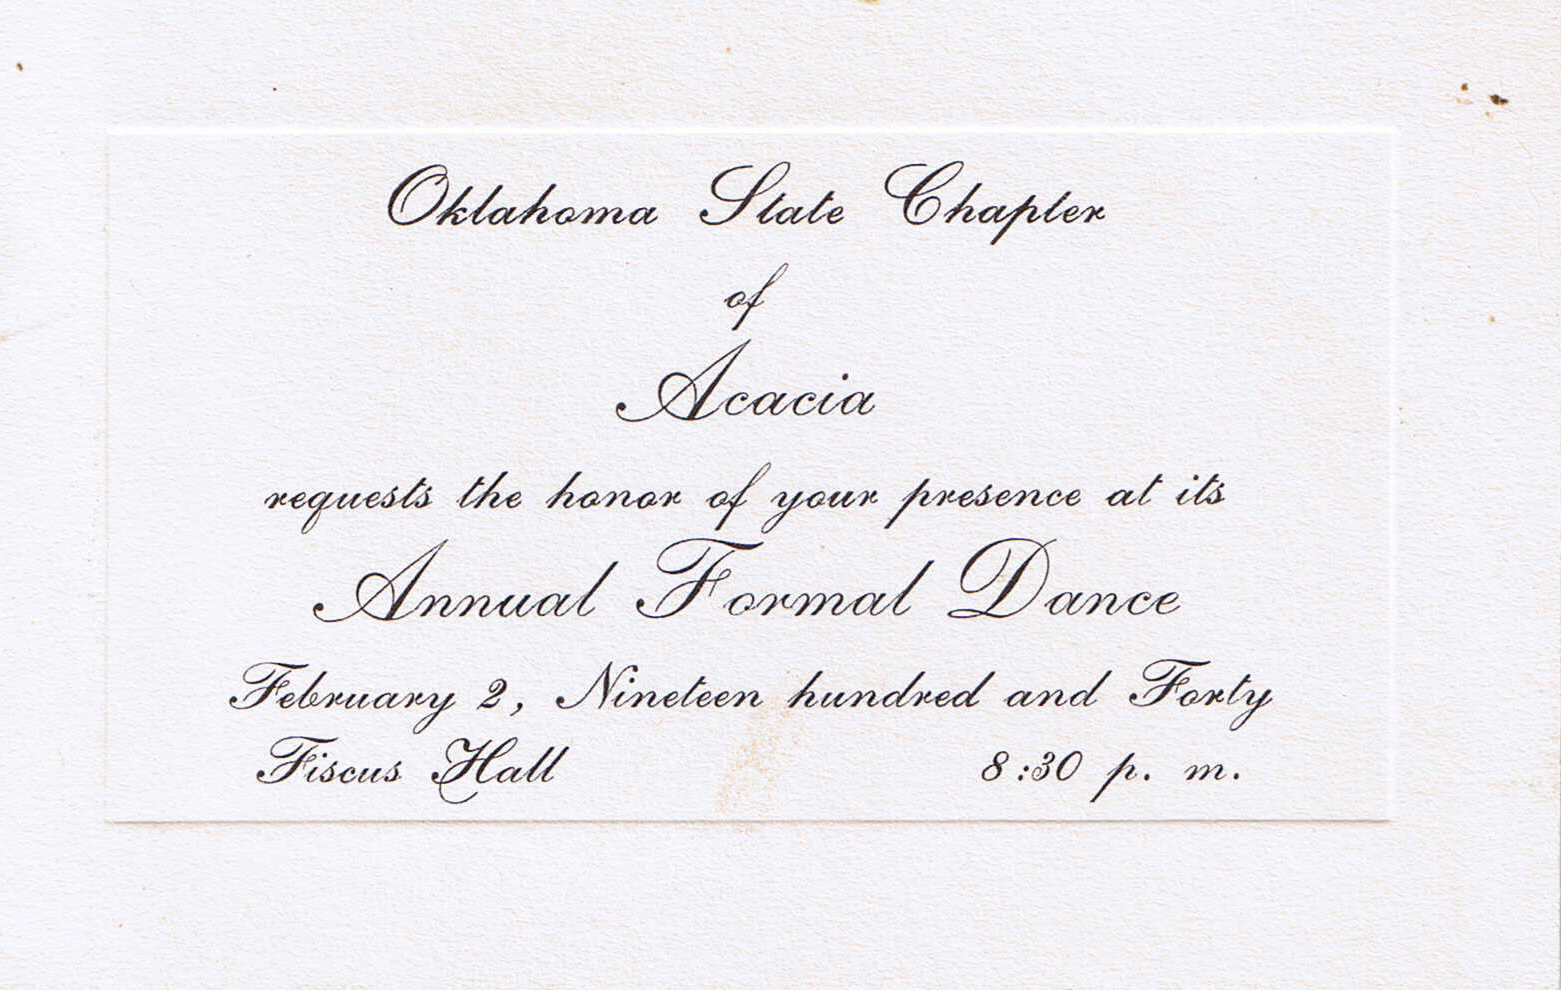 Oklahoma State Chapter
of
Acacia
requests the honor of your presence at its
Annual Formal Dance
February 2, Nineteen hundred and Forty
Fiscus Hall 8:30 p. m.